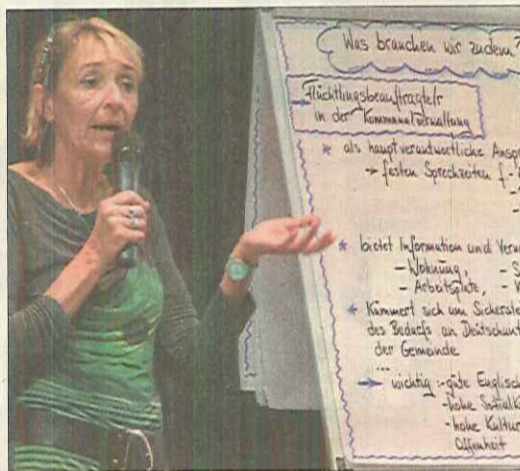 Was brauchen wir zudem?
Flüchtlingsbeauftragte/r
in der Kommunalverwaltung
* als hauptverantwortliche Anspr
→ festen Sprechzeiten f.
* bietet Information und Verm
- Wohnung, - S
- Arbeitsplätze, -
* Kümmert sich um Sicherste
des Bedarfs an Deutschunt
der Gemeinde
...
→ wichtig :- gute Englisch
- hohe Sozialk
- hohe Kultur
Offenheit